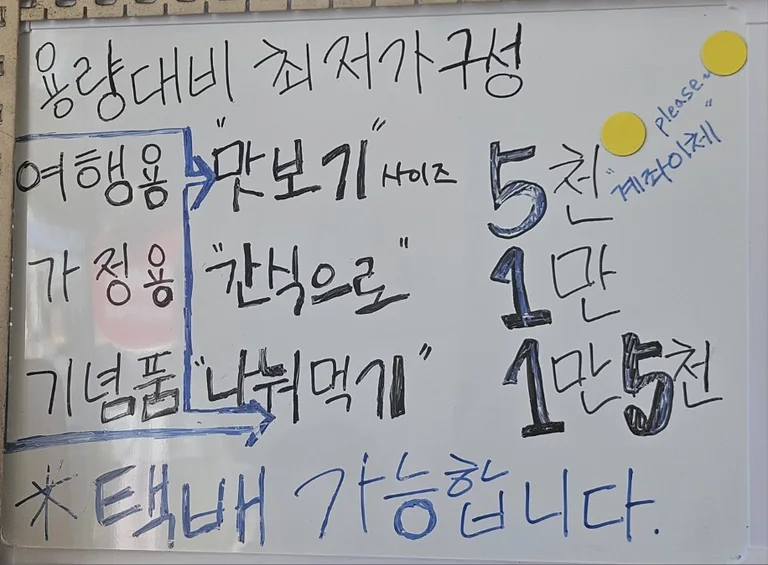 용량대비 최저가구성
please~
"계좌이체"
여행용 "맛보기" 사이즈 5천
가정용 "간식으로" 1만
기념품 "나눠먹기" 1만5천
*택배 가능합니다.